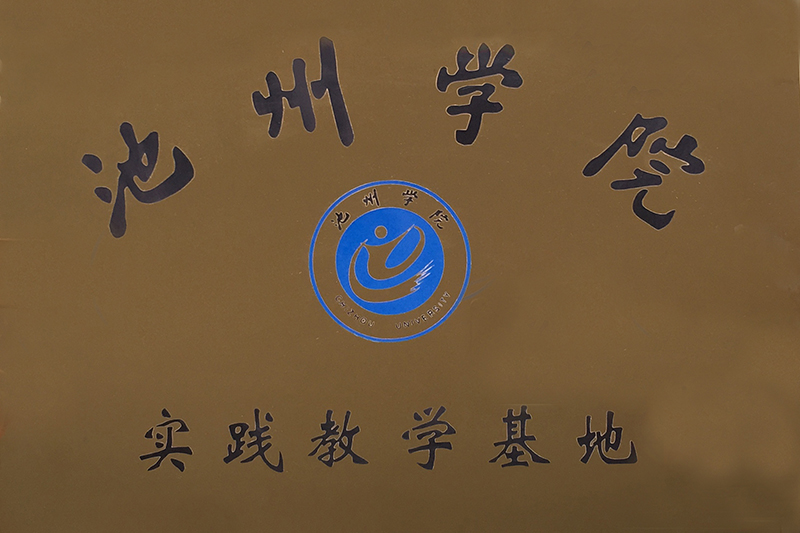 池州学院
池州学院
CHIZHOU UNIVERSITY
实践教学基地